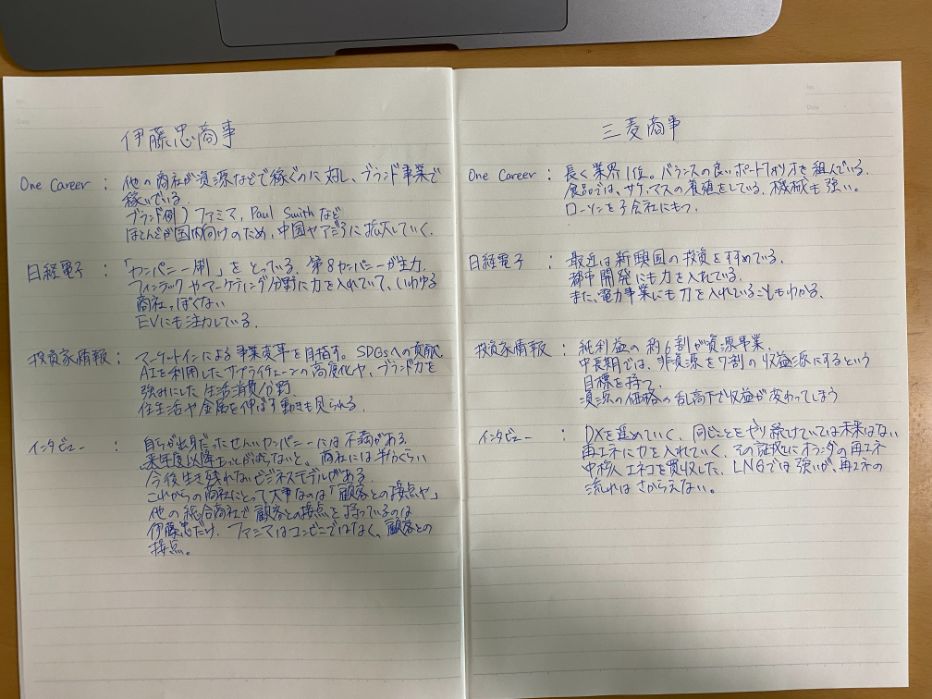 伊藤忠商事
One Career : 他の商社が資源などで稼ぐのに対し、ブランド事業で
稼いでいる.
ブランド例) ファミマ, Paul Smith など
ほとんどが国内向けのため, 中国やアジアに拡大していく.
日経電子 : 「カンパニー制」をとっている. 第8カンパニーが主力.
フィンテックやマーケティング分野に力を入れていて、いわゆる
商社っぽくない
EVにも注力している.
投資家情報 : マーケットインによる事業変革を目指す。SDGsへの貢献.
AIを利用したサプライチェーンの高度化や、ブランド力を
強みにした生活消費分野.
住生活や金属を伸ばす動きも見られる.
インタビュー : 自らが出身だったせんいカンパニーには不満がある.
来年度以降 ないと、商社には
今後生き残れないビジネスモデルがある.
これからの商社にとって大事なのは「顧客との接点や」
他の総合商社で顧客との接点を持っているのは
伊藤忠だけ. ファミマはコンビニではなく、顧客との
接点。
三菱商事
One Career : 長く業界1位。バランスの良いポートフォリオを組んでいる.
食品では、サケ、マスの養殖をしている. 機械も強い.
ローソンを子会社にもつ.
日経電子 : 最近は新興国の投資をすすめている.
都市開発にも力を入れている.
また、電力事業にも力を入れていることもわかる.
投資家情報 : 純利益の約6割が資源事業.
中長期では、非資源を7割の収益源にするという
目標を持つ.
資源の価格の乱高下で収益が変わってしまう
インタビュー : DXを進めていく、同じことをやり続けていては未来はない
再エネに力を入れていく、その証拠にオランダの再エネ
中核人エネコを買収した、LNGでは強いが、再エネの
流れはさからえない。